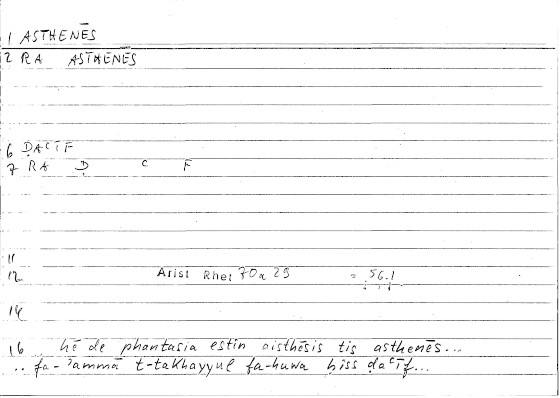 1 ASTHENĒS
2 RA ASTHENĒS
6 ḌAʿĪF
7 RA Ḍ ʿ F
11
12 Arist Rhet 70a 29 = 56.1
14
16 hē de phantasia estin aisthēsis tis asthenēs...
.. fa-ʾammā t-takhayyul fa-huwa ḥiss ḍaʿīf...